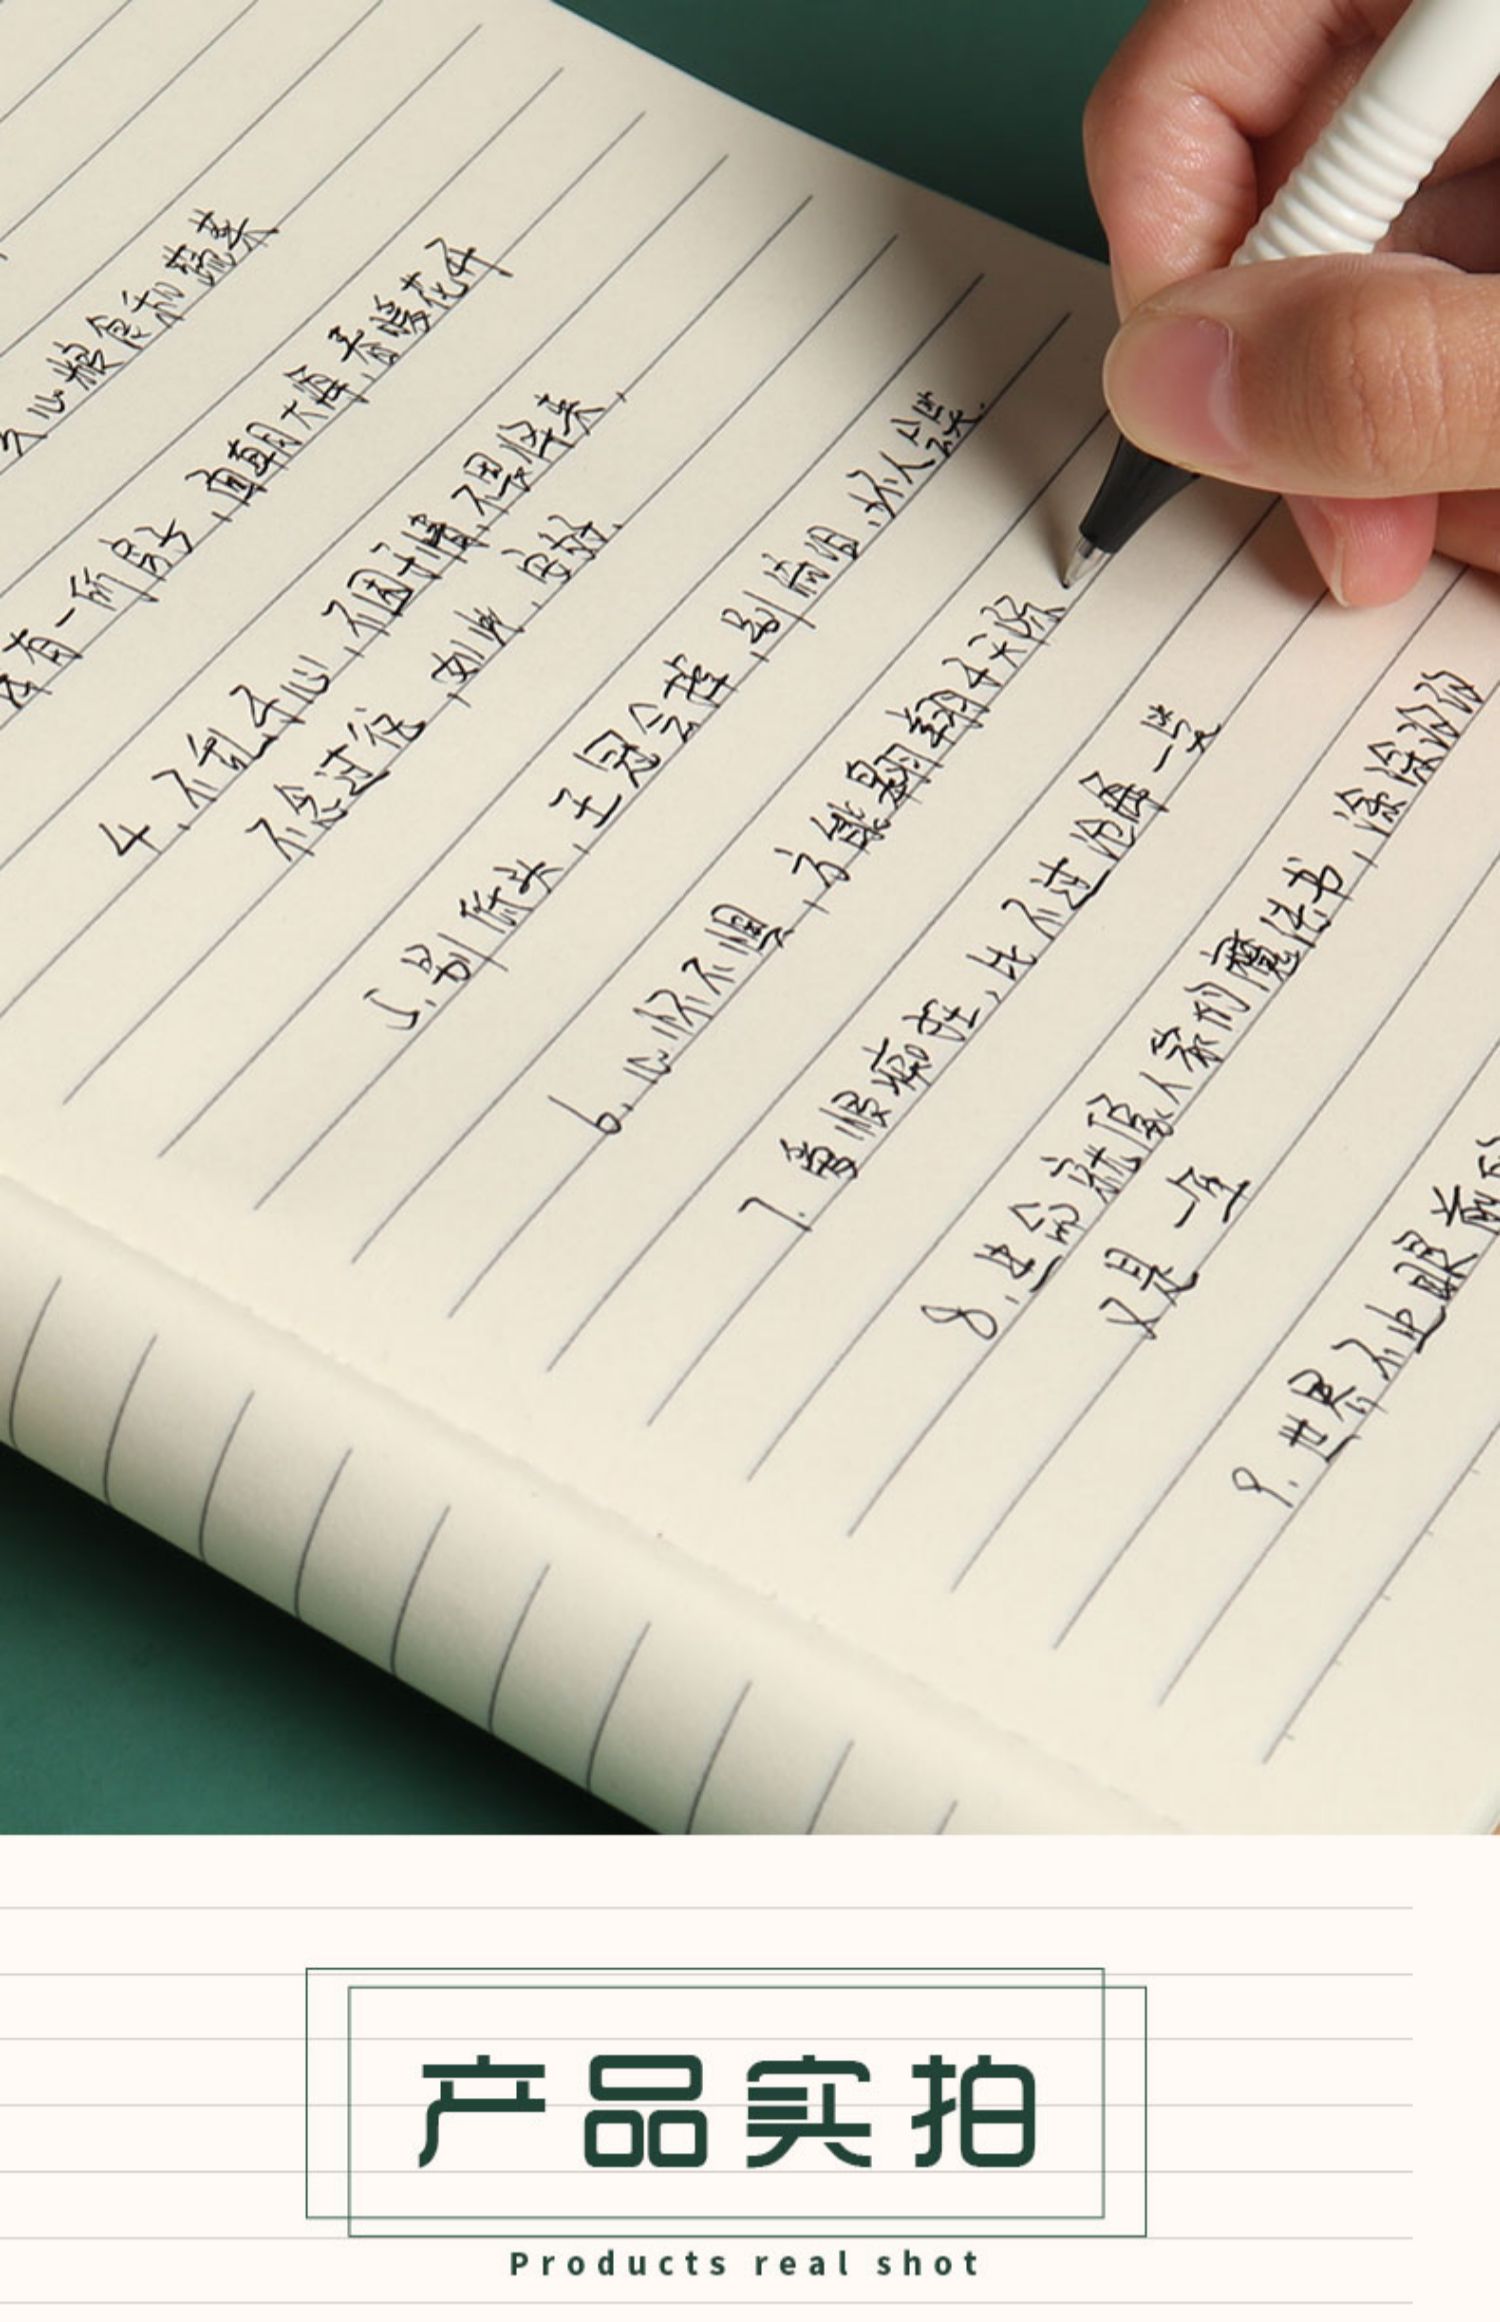 心粮食和蔬菜
有一所房子,面朝大海,春暖花开
4.不乱于心,不困于情,不畏将来,
不念过往,如此,安好.
5.别低头,王冠会掉,别流泪,坏人会笑.
6.心怀不惧,方能翱翔于天际
7.万般痴狂,比不过沧海一笑
8.生命就像人家的魔法书,涂涂改改
又是一生
9.世界不止眼前的
产品实拍
Products real shot